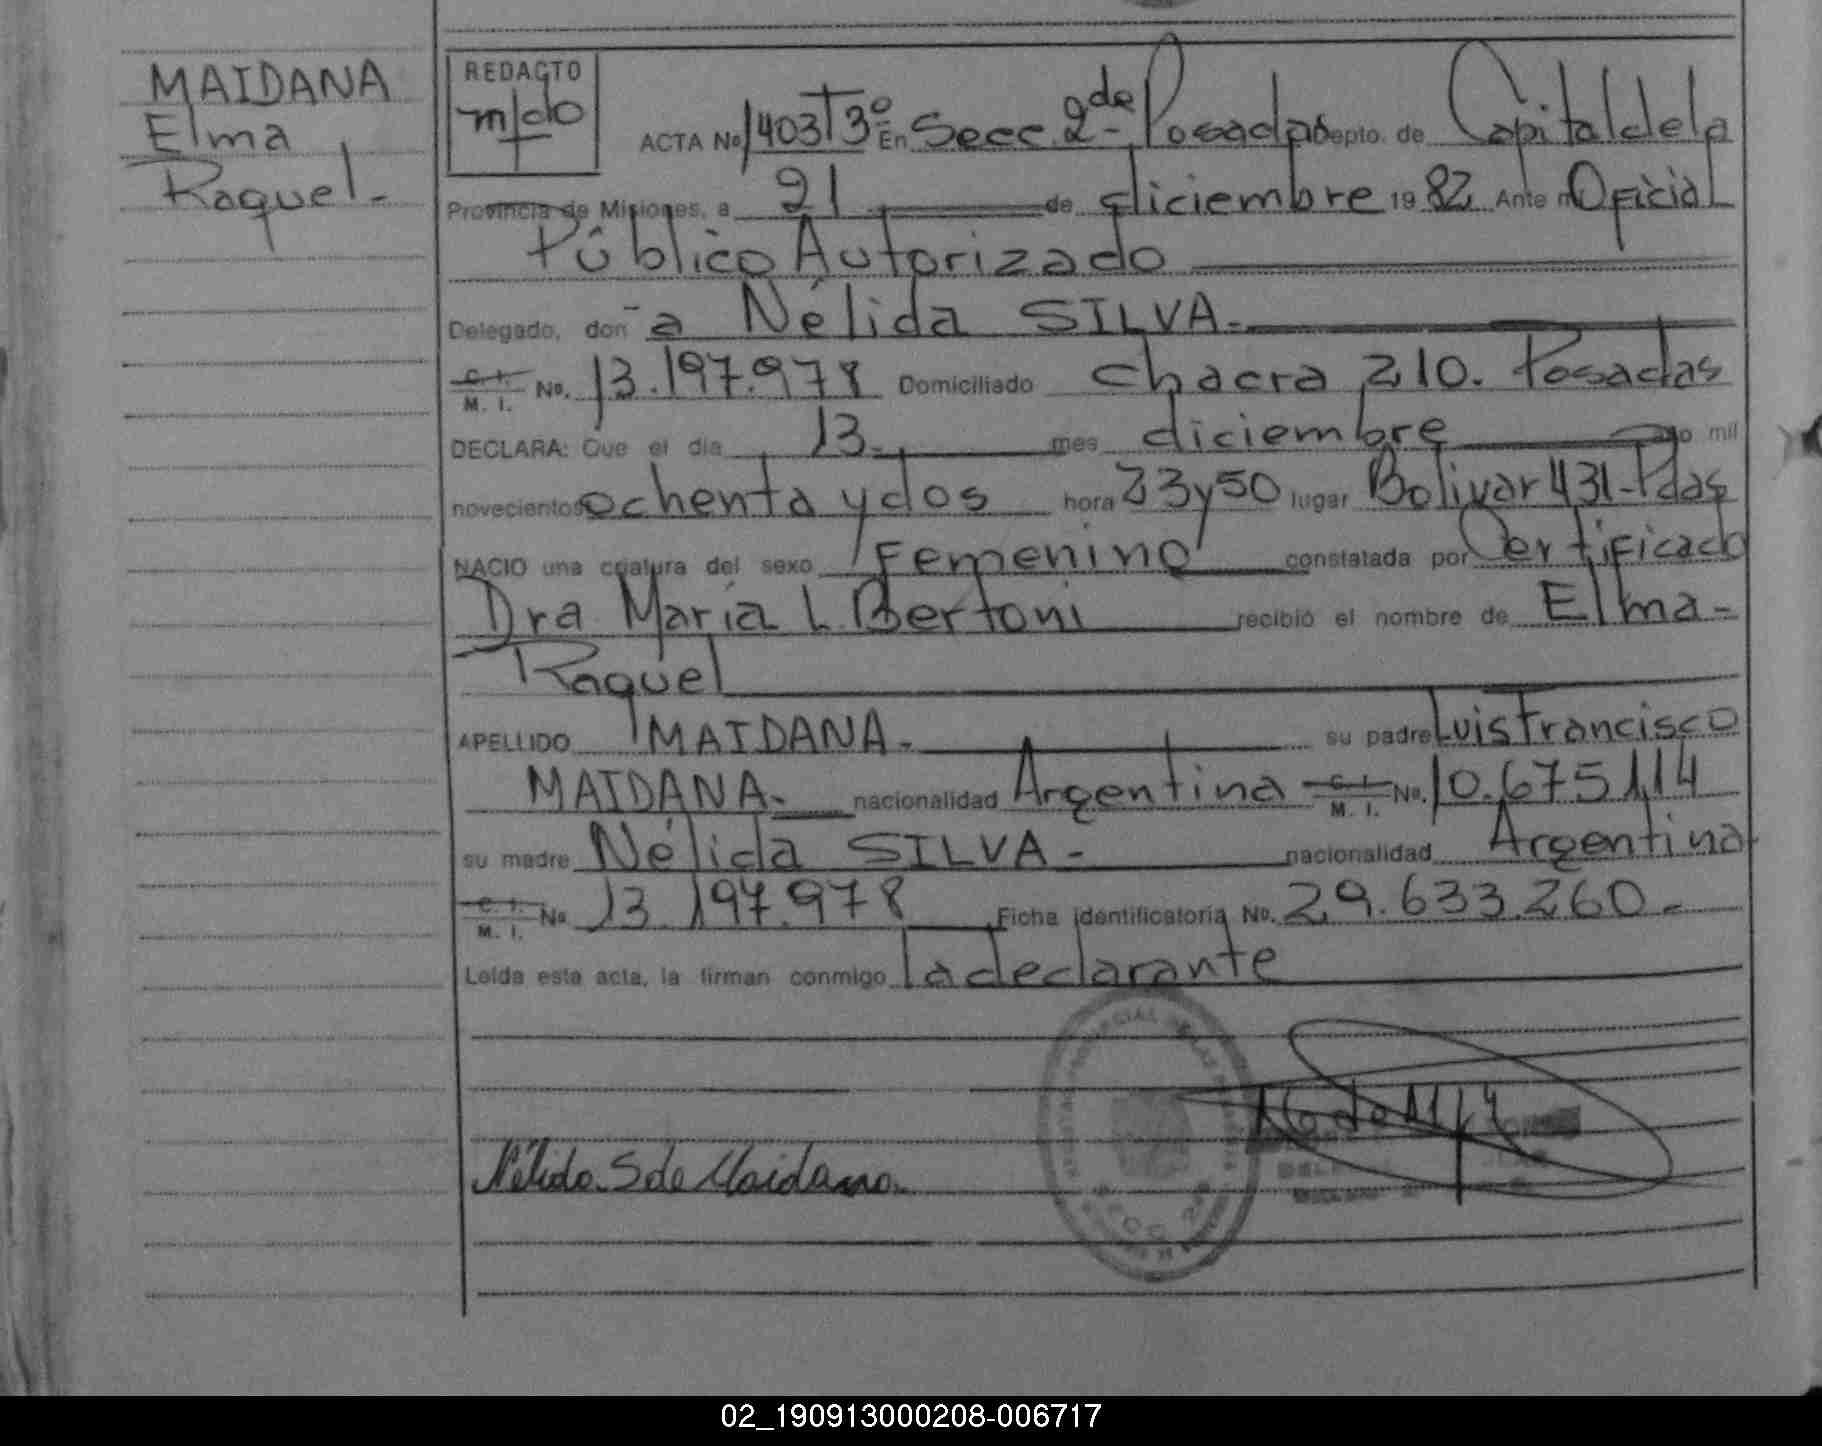 MAIDANA
Elma
Raquel-
REDACTO
ACTA No 1403 T3º En Secc. 2da- Posadas Depto. de Capital de la
Provincia de Misiones, a 21 de diciembre 1982 Ante m Oficial
Público Autorizado
Delegado, don~a Nélida SILVA.-
C. I. M. I. No. 13.197.978 Domiciliado chacra 210. Posadas
DECLARA: Que el dia 13- mes diciembre año mil
novecientos ochenta y dos hora 23y50 lugar Bolivar 431-Pdas
NACIO una criatura del sexo Femenino constatada por Certificado
Dra María L. Bertoni recibió el nombre de Elma-
Raquel
APELLIDO MAIDANA- su padre Luis Francisco
MAIDANA- nacionalidad Argentina C. I. M. I. No. 10.675.114
su madre Nélida SILVA- nacionalidad Argentina
C. I. M. I. No. 13.197.978 Ficha identificatoria No. 29.633.260-
Leida esta acta, la firman conmigo la declarante
Nélida S de Maidana.
02_190913000208-006717